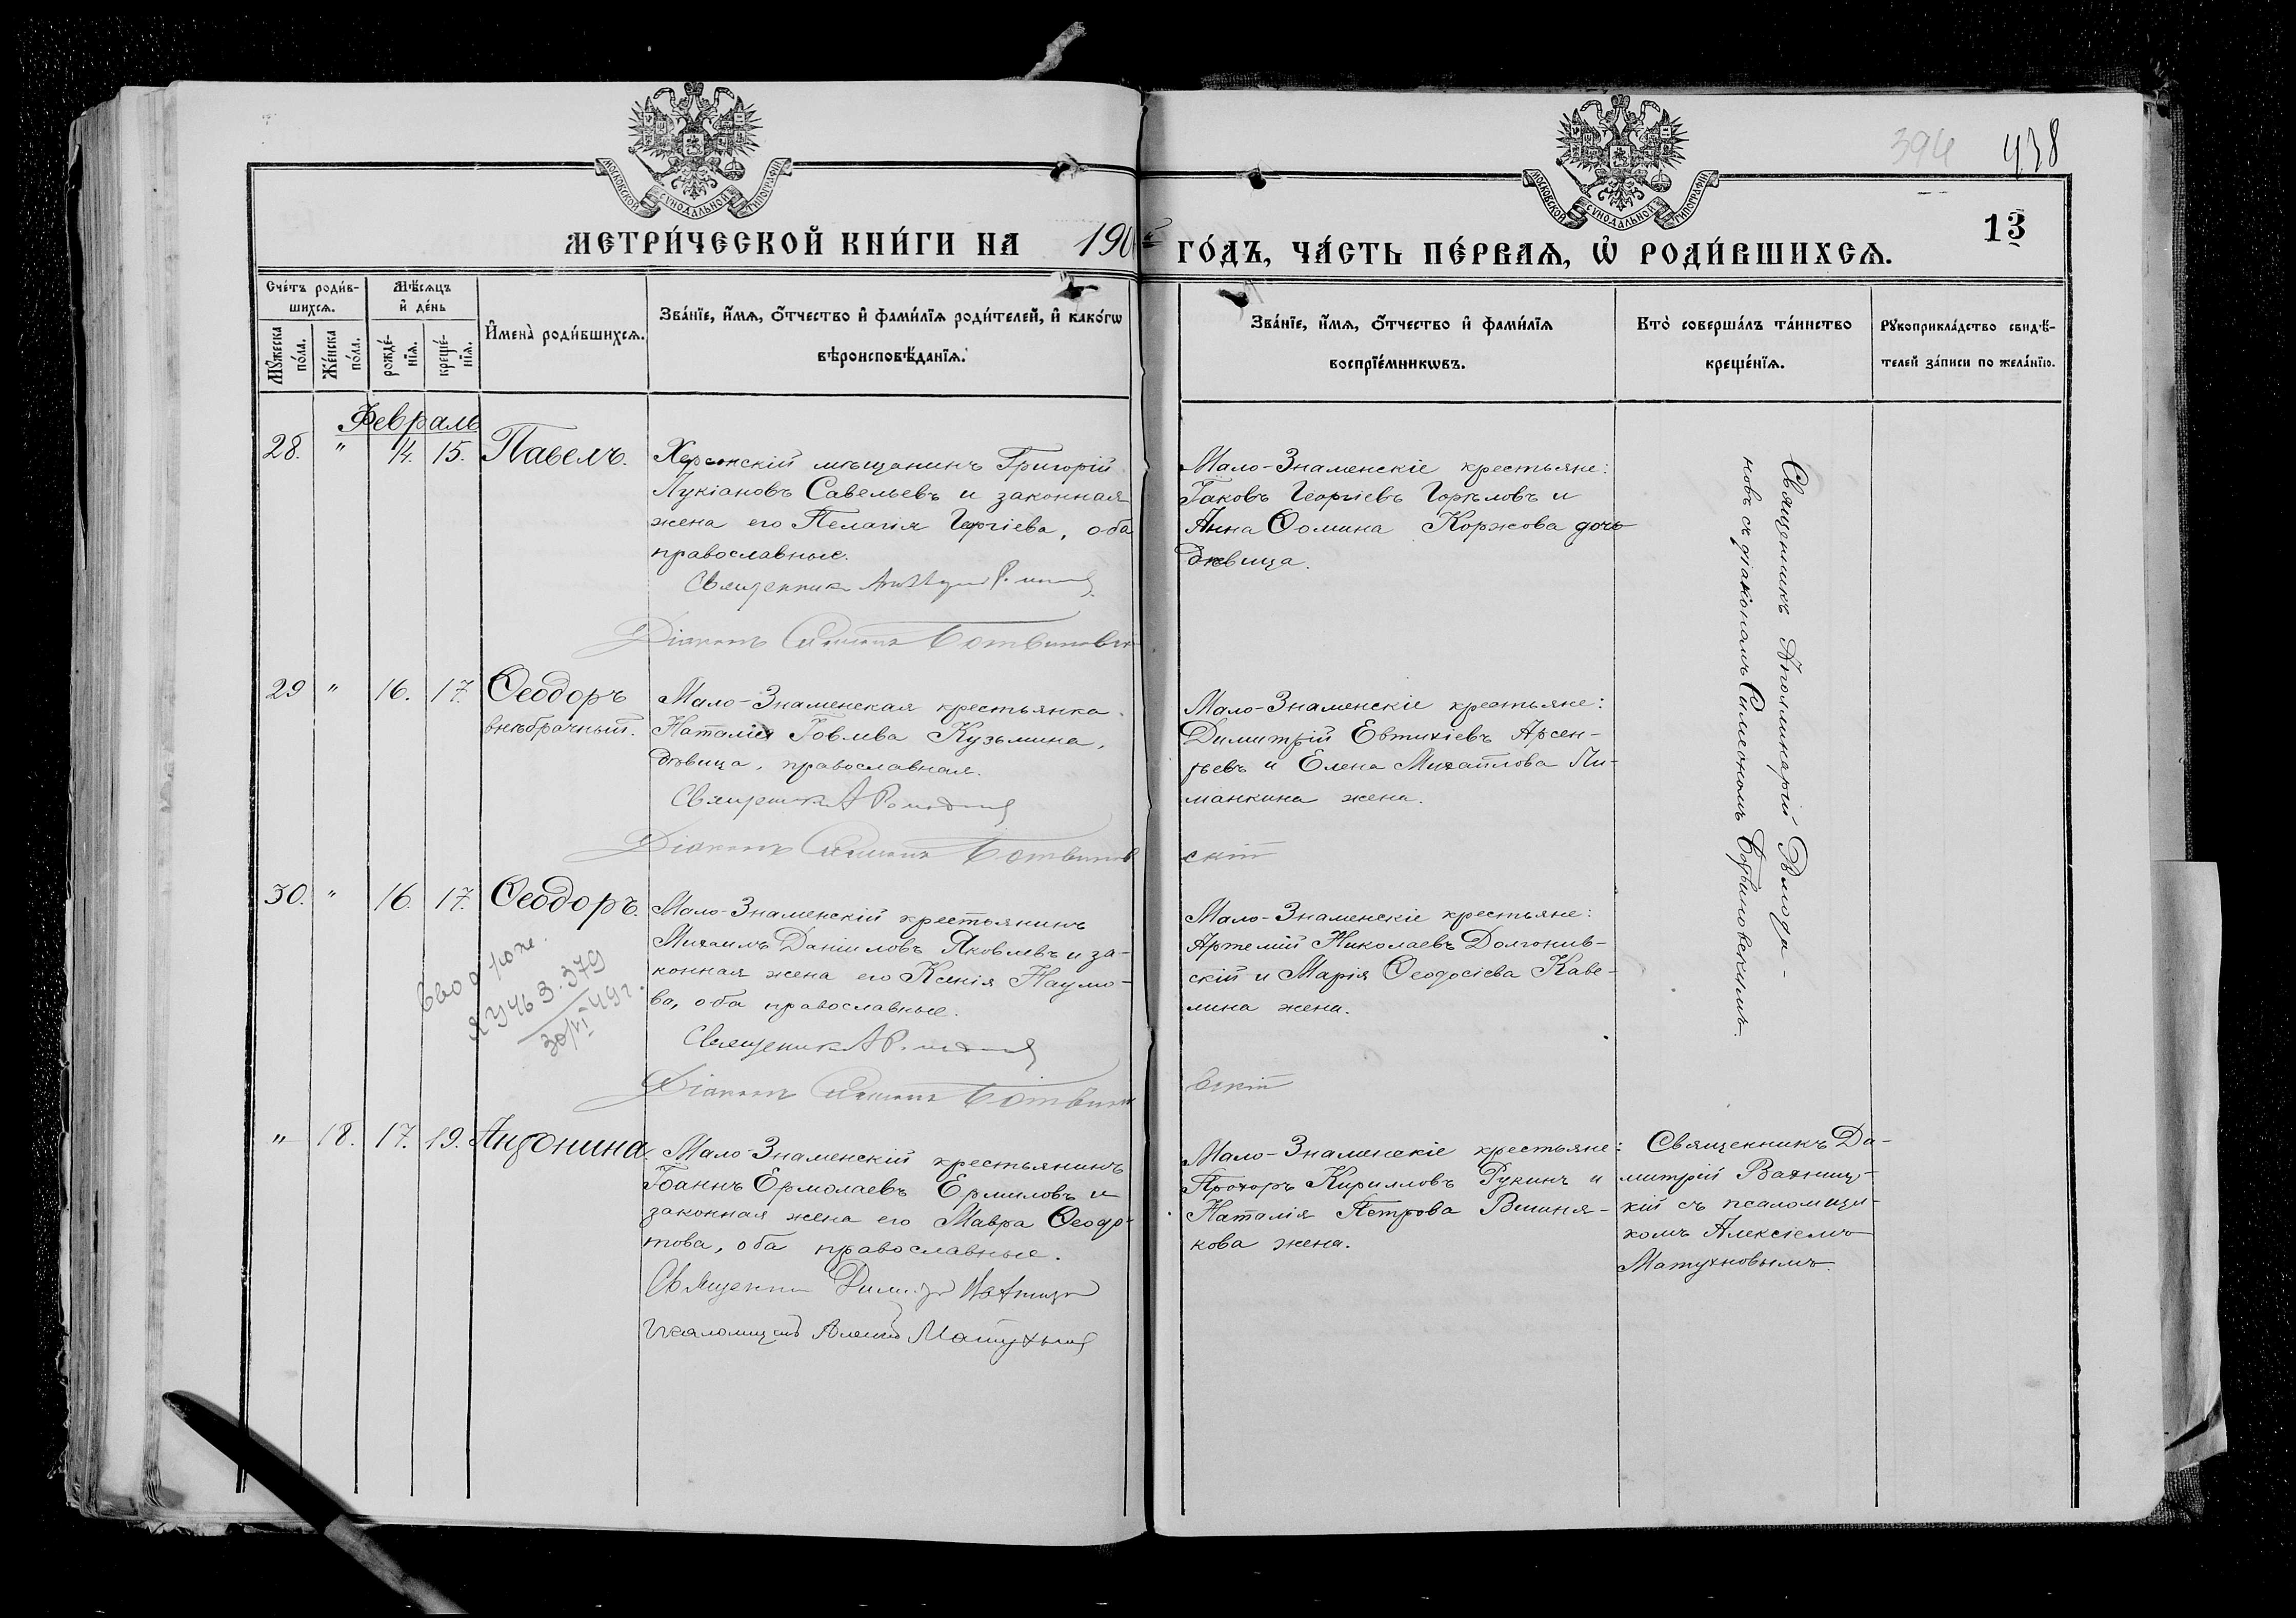 МОСКОВСКОЙ СУНОДАЛЬНОЙ ТИПОГРАФІИ
МОСКОВСКОЙ СУНОДАЛЬНОЙ ТИПОГРАФІИ
394 438
13
МЕТРИ́ЧЕСКОЙ КНИ́ГИ НА 190
ГО́ДЪ, ЧА́СТЬ ПЕ́РВАѦ, Ѡ҆ РОДИ́ВШИХСѦ.
Сче́тъ роди́в-
шихсѧ.
Мꙋ́жеска по́ла.
Же́нска по́ла.
Мѣ́сѧцъ
и҆ де́нь
рожде́-нїѧ.
креще́-нїѧ.
И҆мена̀ роди́вшихсѧ.
Зва́нїе, и҆́мѧ, ѻ҆́тчество и҆ фами́лїѧ роди́телей, и҆ како́гѡ
вѣроисповѣ́данїѧ.
Зва́нїе, и҆́мѧ, ѻ҆́тчество и҆ фами́лїѧ
воспрїе́мникѡвъ.
Кто̀ соверша́лъ та́инство
креще́нїѧ.
Рꙋкоприкла́дство свидѣ́-
телей за́писи по жела́нїю.
Февраль
28. " 14. 15. Павелъ.
Херсонскій мѣщанинъ Григорій
Лукіановъ Савельевъ и законная
жена его Пелагія Георгіева, оба
православные.
Священникъ
Діаконъ Симеонъ Ботвиновскій
Мало-Знаменскіе крестьяне:
Іаковъ Георгіевъ Горѣловъ и
Анна Ѳомина Коржова дочь
дѣвица.
Священникъ Аполлинарій Ромода-
новъ съ діакономъ Симеономъ Ботвиновскимъ.
29 " 16. 17. Ѳеодоръ
внѣбрачный.
Мало-Знаменская крестьянка
Наталія Іовлева Кузьмина,
вдовица, православная.
Священникъ А Ромодановъ
Діаконъ Симеонъ Ботвинов
скій
Мало-Знаменскіе крестьяне:
Димитрій Евтихіевъ Арсен-
тьевъ и Елена Михайлова Пи-
манкина жена.
30. " 16. 17. Ѳеодоръ.
Мало-Знаменскій крестьянинъ
Михаилъ Даніиловъ Яковлевъ и за-
конная жена его Ксенія Наумо-
ва, оба православные.
Священникъ А Ромодановъ
Діаконъ Симеонъ Ботвино
вскій
Мало-Знаменскіе крестьяне:
Артемій Николаевъ Долгонив-
скій и Марія Ѳеодосіева Каве-
лина жена.
сво о рож.
ЯУ 463.379
30/VI 49г.
" 18. 17. 19. Антонина
Мало-Знаменскій крестьянинъ
Іоаннъ Ермолаевъ Ермиловъ и
законная жена его Мавра Ѳеодо-
това, оба православные.
Псаломщикъ Алексій Матухновъ
Мало-Знаменскіе крестьяне:
Прохоръ Кирилловъ Рукинъ и
Наталія Петрова Вишня-
кова жена.
Священникъ Ди-
митрій Вахниц-
кій съ псаломщи-
комъ Алексіемъ
Матухновымъ.